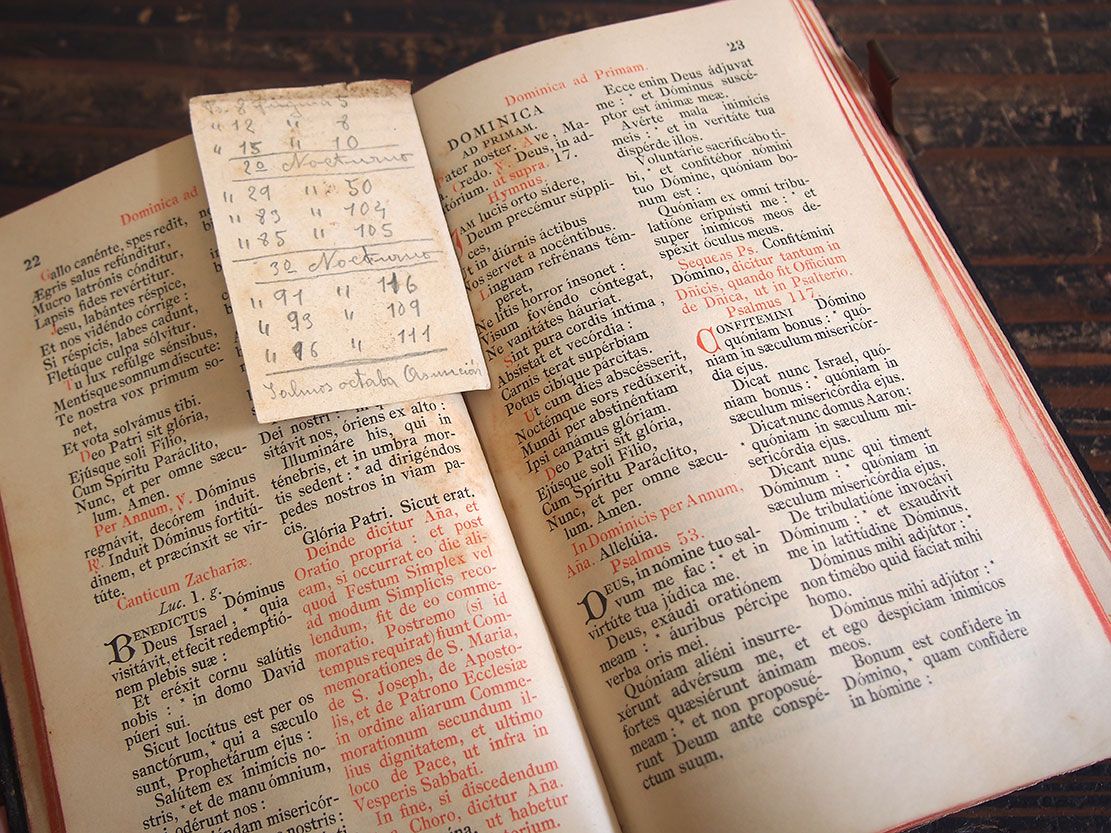 22
Dominica ad
Gallo canénte, spes redit,
Ægris salus refúnditur,
Mucro latrónis cónditur,
Lapsis fides revértitur.
Jesu, labántes réspice,
Et nos vidéndo córrige:
Si réspicis, labes cadunt,
Fletúque culpa sólvitur.
Tu lux refúlge sénsibus,
Mentísque somnum discute:
Te nostra vox primum so-
net,
Et vota solvámus tibi.
Deo Patri sit glória,
Ejúsque soli Fílio,
Cum Spíritu Paráclito,
Nunc, et per omne sæcu-
lum. Amen.
Per Annum, ℣. Dóminus
regnávit, decórem índuit.
℟. Induit Dóminus fortitú-
dinem, et præcinxit se vir-
túte.
Canticum Zachariæ.
Luc. 1. g.
BENEDICTUS Dóminus
Deus Israel, * quia
visitávit, et fecit redemptió-
nem plebis suæ:
Et eréxit cornu salútis
nobis: * in domo David
púeri sui.
Sicut locútus est per os
sanctórum, * qui a sæculo
sunt, Prophetárum ejus:
Salútem ex inimícis no-
stris, * et de manu ómnium,
odérunt nos:
nostris:
Dei nostri:
sitávit nos, óriens ex alto:
Illumináre his, qui in
ténebris, et in umbra mor-
tis sedent: * ad dirigéndos
pedes nostros in viam pa-
cis.
Glória Patri. Sicut erat.
Deinde dicitur Aña, et
Oratio propria: et post
eam, si occurrat eo die ali-
quod Festum Simplex vel
ad modum Simplicis reco-
lendum, fit de eo comme-
moratio. Postremo (si id
tempus requirat) fiunt Com-
memorationes de S. Maria,
de S. Joseph, de Aposto-
lis, et de Patrono Ecclesiæ
in ordine aliarum Comme-
morationum secundum il-
lius dignitatem, et ultimo
loco de Pace, ut infra in
Vesperis Sabbati.
In fine, si discedendum
Choro, dicitur Aña.
ut habetur
8
" 12 " 8
" 15 " 10
2º Nocturno
" 29 " 50
" 83 " 104
" 85 " 105
3º Nocturno
" 91 " 116
" 93 " 109
" 96 " 111
Salmos octaba Asunción
23
Dominica ad Primam.
DOMINICA
AD PRIMAM.
Pater noster. Ave, Ma-
Credo. ℣. Deus, in ad-
tórium. ut supra. 17.
Hymnus.
JAM lucis orto sídere,
Deum precémur súppli-
ces,
Ut in diúrnis áctibus
servet a nocéntibus.
Linguam refrénans tém-
peret,
Ne litis horror ínsonet:
Visum fovéndo cóntegat,
Ne vanitátes háuriat.
Sint pura cordis íntima,
Absístat et vecórdia:
Carnis terat supérbiam
Potus cibíque párcitas.
Ut cum dies abscésserit,
Noctémque sors redúxerit,
Mundi per abstinéntiam
Ipsi canámus glóriam.
Deo Patri sit glória,
Ejúsque soli Fílio,
Cum Spíritu Paráclito,
Nunc, et per omne sæcu-
lum. Amen.
In Dominicis per Annum,
Aña. Allelúia.
Psalmus 53.
DEUS, in nómine tuo sal-
vum me fac: * et in
virtúte tua júdica me.
Deus, exáudi oratiónem
meam: * áuribus pércipe
verba oris mei.
Quóniam aliéni insurre-
xérunt advérsum me, et
fortes quæsiérunt ánimam
meam: * et non proposué-
runt Deum ante conspé-
ctum suum.
Ecce enim Deus ádjuvat
me: * et Dóminus suscé-
ptor est ánimæ meæ.
Avérte mala inimícis
meis: * et in veritáte tua
dispérde illos.
Voluntárie sacrificábo ti-
bi, * et confitébor nómini
tuo Dómine, quóniam bo-
num est:
Quóniam ex omni tribu-
latióne eripuísti me: * et
super inimícos meos de-
spéxit óculus meus.
Sequens Ps. Confitémini
Dómino, dicitur tantum in
Dñicis, quando fit Officium
de Dnica, ut in Psalterio.
Psalmus 117.
CONFITEMINI Dómino
quóniam bonus: * quó-
niam in sæculum misericór-
dia ejus.
Dicat nunc Israel, quó-
niam bonus: * quóniam in
sæculum misericórdia ejus.
Dicat nunc domus Aaron:
* quóniam in sæculum mi-
sericórdia ejus.
Dicant nunc qui timent
Dóminum: * quóniam in
sæculum misericórdia ejus.
De tribulatióne invocávi
Dóminum: * et exaudívit
me in latitúdine Dóminus.
Dóminus mihi adjútor: *
non timébo quid fáciat mihi
homo.
Dóminus mihi adjútor: *
et ego despíciam inimícos
meos.
Bonum est confídere in
Dómino, * quam confídere
in hómine: